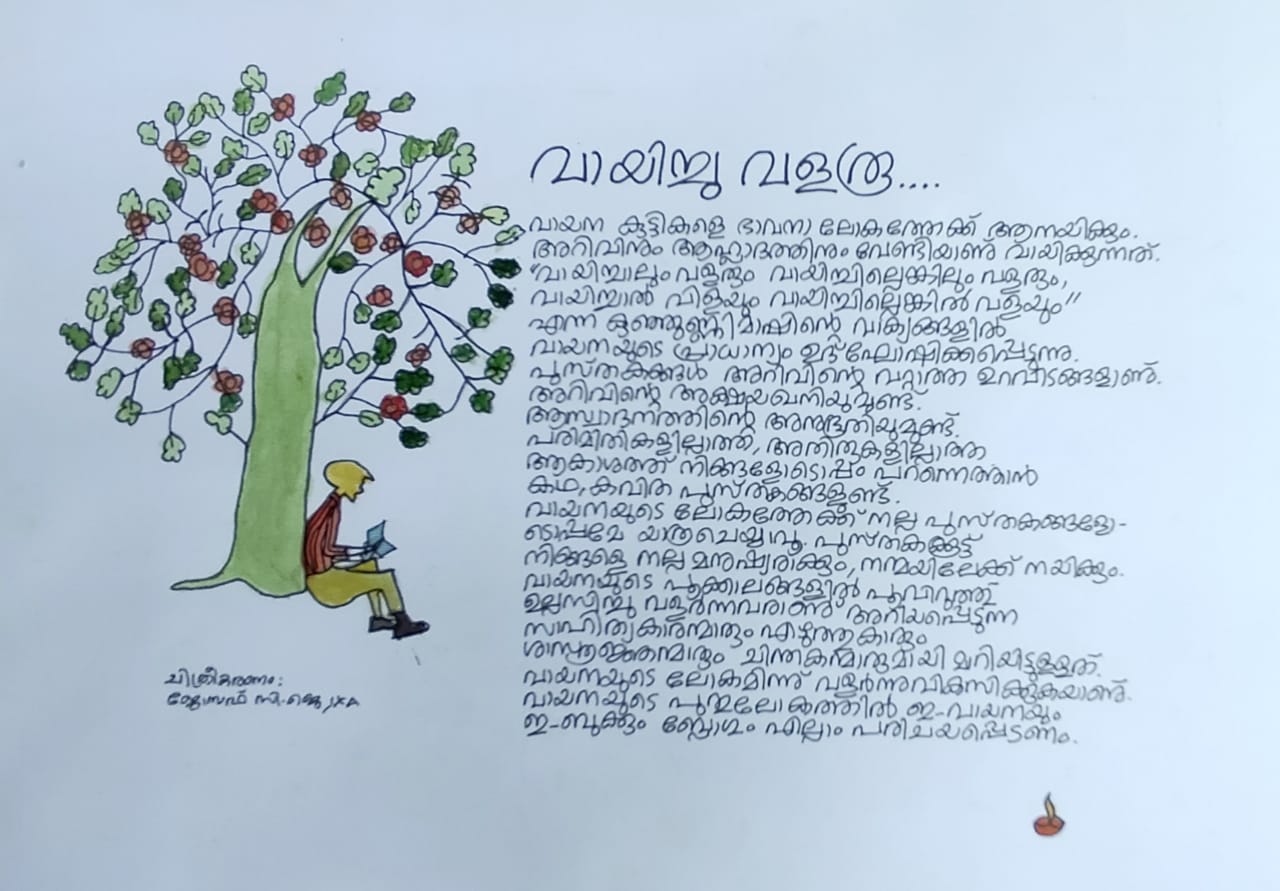 വായിച്ചു വളരൂ....
വായന കുട്ടികളെ ഭാവനാ ലോകത്തേക്ക് ആനയിക്കും.
അറിവിനും ആഹ്ലാദത്തിനും വേണ്ടിയാണ് വായിക്കുന്നത്.
"വായിച്ചാലും വളരും വായിച്ചില്ലെങ്കിലും വളരും,
വായിച്ചാൽ വിളയും വായിച്ചില്ലെങ്കിൽ വളയും"
എന്ന കുഞ്ഞുണ്ണിമാഷിന്റെ വാക്യങ്ങളിൽ
വായനയുടെ പ്രാധാന്യം ഉദ്ഘോഷിക്കപ്പെടുന്നു.
പുസ്തകങ്ങൾ അറിവിന്റെ വറ്റാത്ത ഉറവിടങ്ങളാണ്.
അറിവിന്റെ അക്ഷയഖനിയുമുണ്ട്.
ആസ്വാദനത്തിന്റെ അനുഭൂതിയുമുണ്ട്.
പരിമിതികളില്ലാത്ത, അതിരുകളില്ലാത്ത
ആകാശത്ത് നിങ്ങളോടൊപ്പം പറന്നെത്താൻ
കഥ, കവിത പുസ്തകങ്ങളുണ്ട്.
വായനയുടെ ലോകത്തേക്ക് നല്ല പുസ്തകങ്ങളോ-
ടൊപ്പമേ യാത്രചെയ്യാവൂ. പുസ്തകക്കൂട്ട്
നിങ്ങളെ നല്ല മനുഷ്യരാക്കും, നന്മയിലേക്ക് നയിക്കും.
വായനയുടെ പൂക്കാലങ്ങളിൽ പൂവിറുത്ത്
ഉല്ലസിച്ചു വളർന്നവരാണ് അറിയപ്പെടുന്ന
സാഹിത്യകാരന്മാരും എഴുത്തുകാരും
ശാസ്ത്രജ്ഞന്മാരും ചിന്തകന്മാരുമായി മാറിയിട്ടുള്ളത്.
വായനയുടെ ലോകമിന്ന് വളർന്നുവികസിക്കുകയാണ്.
വായനയുടെ പുതുലോകത്തിൽ ഇ-വായനയും
ഇ-ബുക്കും ബ്ലോഗും എല്ലാം പരിചയപ്പെടണം.
ചിത്രീകരണം:
ജോസഫ് സി.ജെ,